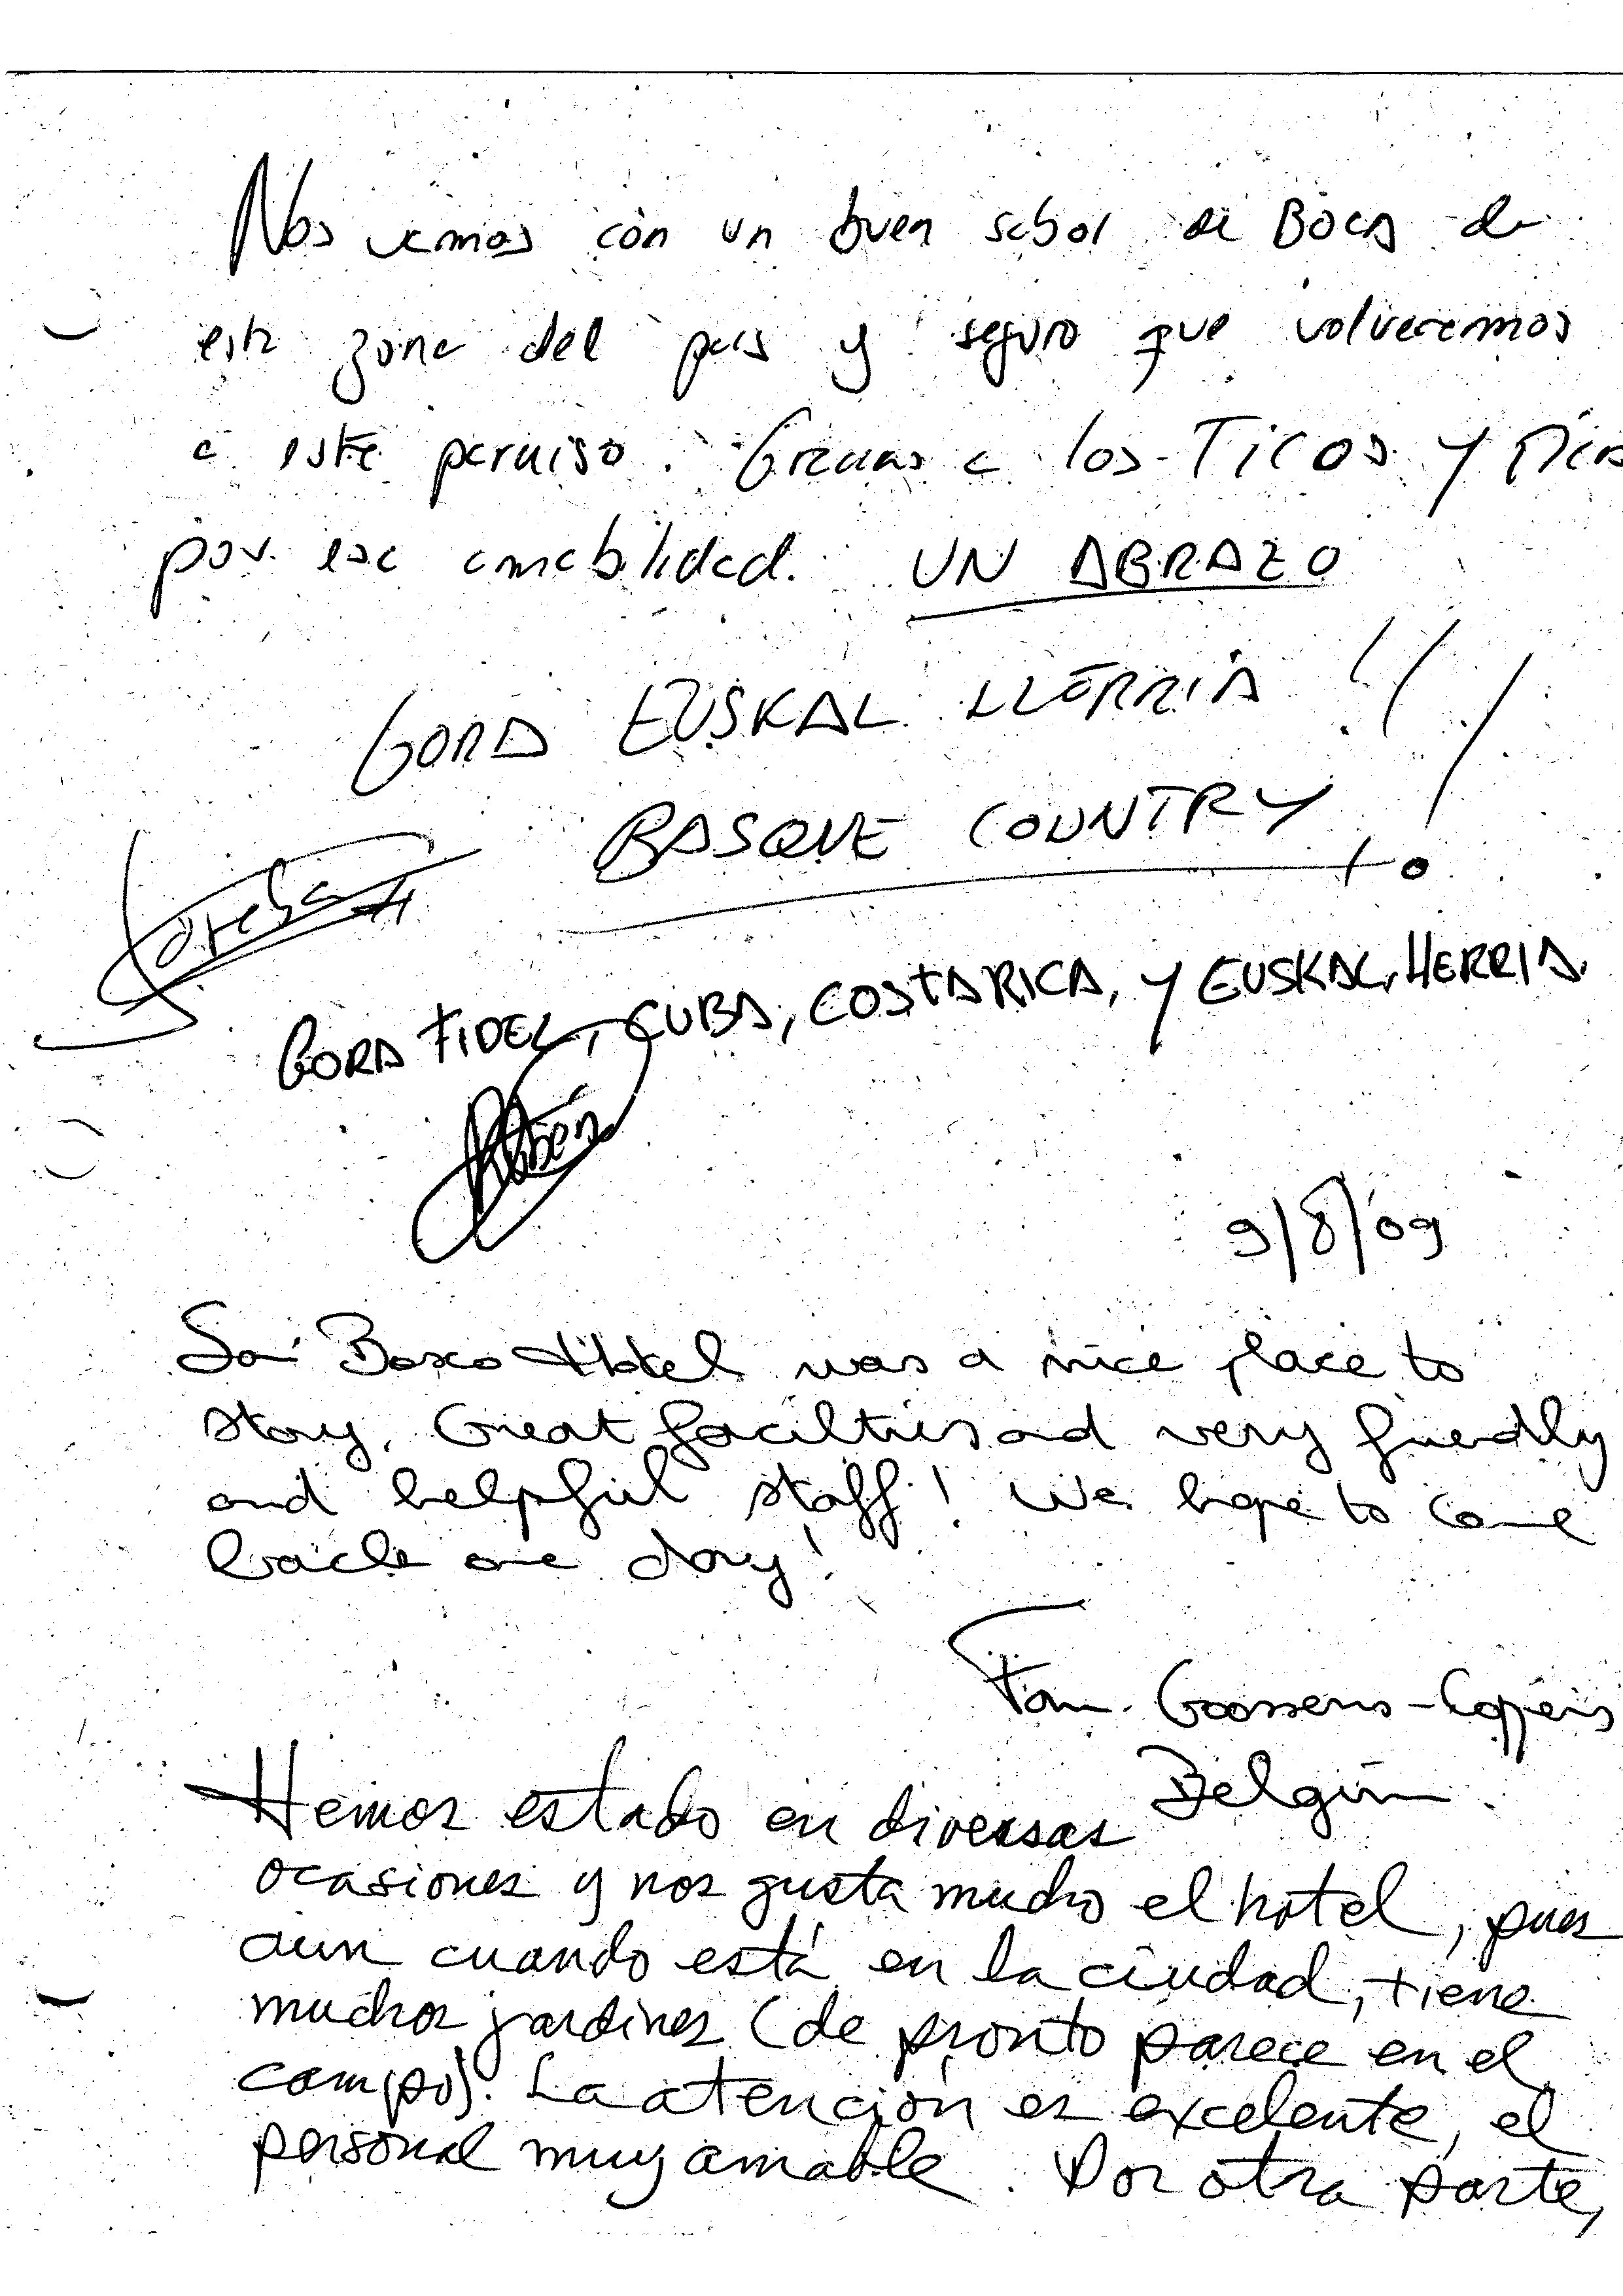 Nos vamos con un buen sabor de BOCA de
esta zona del pais y seguro que volveremos
a este paraiso. Gracias a los TICOS Y TICAS
por esa amabilidad. UN ABRAZO
GORA EUSKAL LLERRIA !!
BASQUE COUNTRY !
GORA FIDEL, CUBA, COSTARICA, Y EUSKAL HERRIA.
Rubén
9/8/09
San Bosco Hotel was a nice place to
stay. Great facilties and very friendly
and helpful staff! We hope to come
back one day!
Fam. Goossens-Coppens
Belgium.
Hemos estado en diversas
ocasiones y nos gusta mucho el hotel, pues
aun cuando está en la ciudad, tiene
muchos jardines (de pronto parece en el
campo). La atención es excelente, el
personal muy amable. Por otra parte,